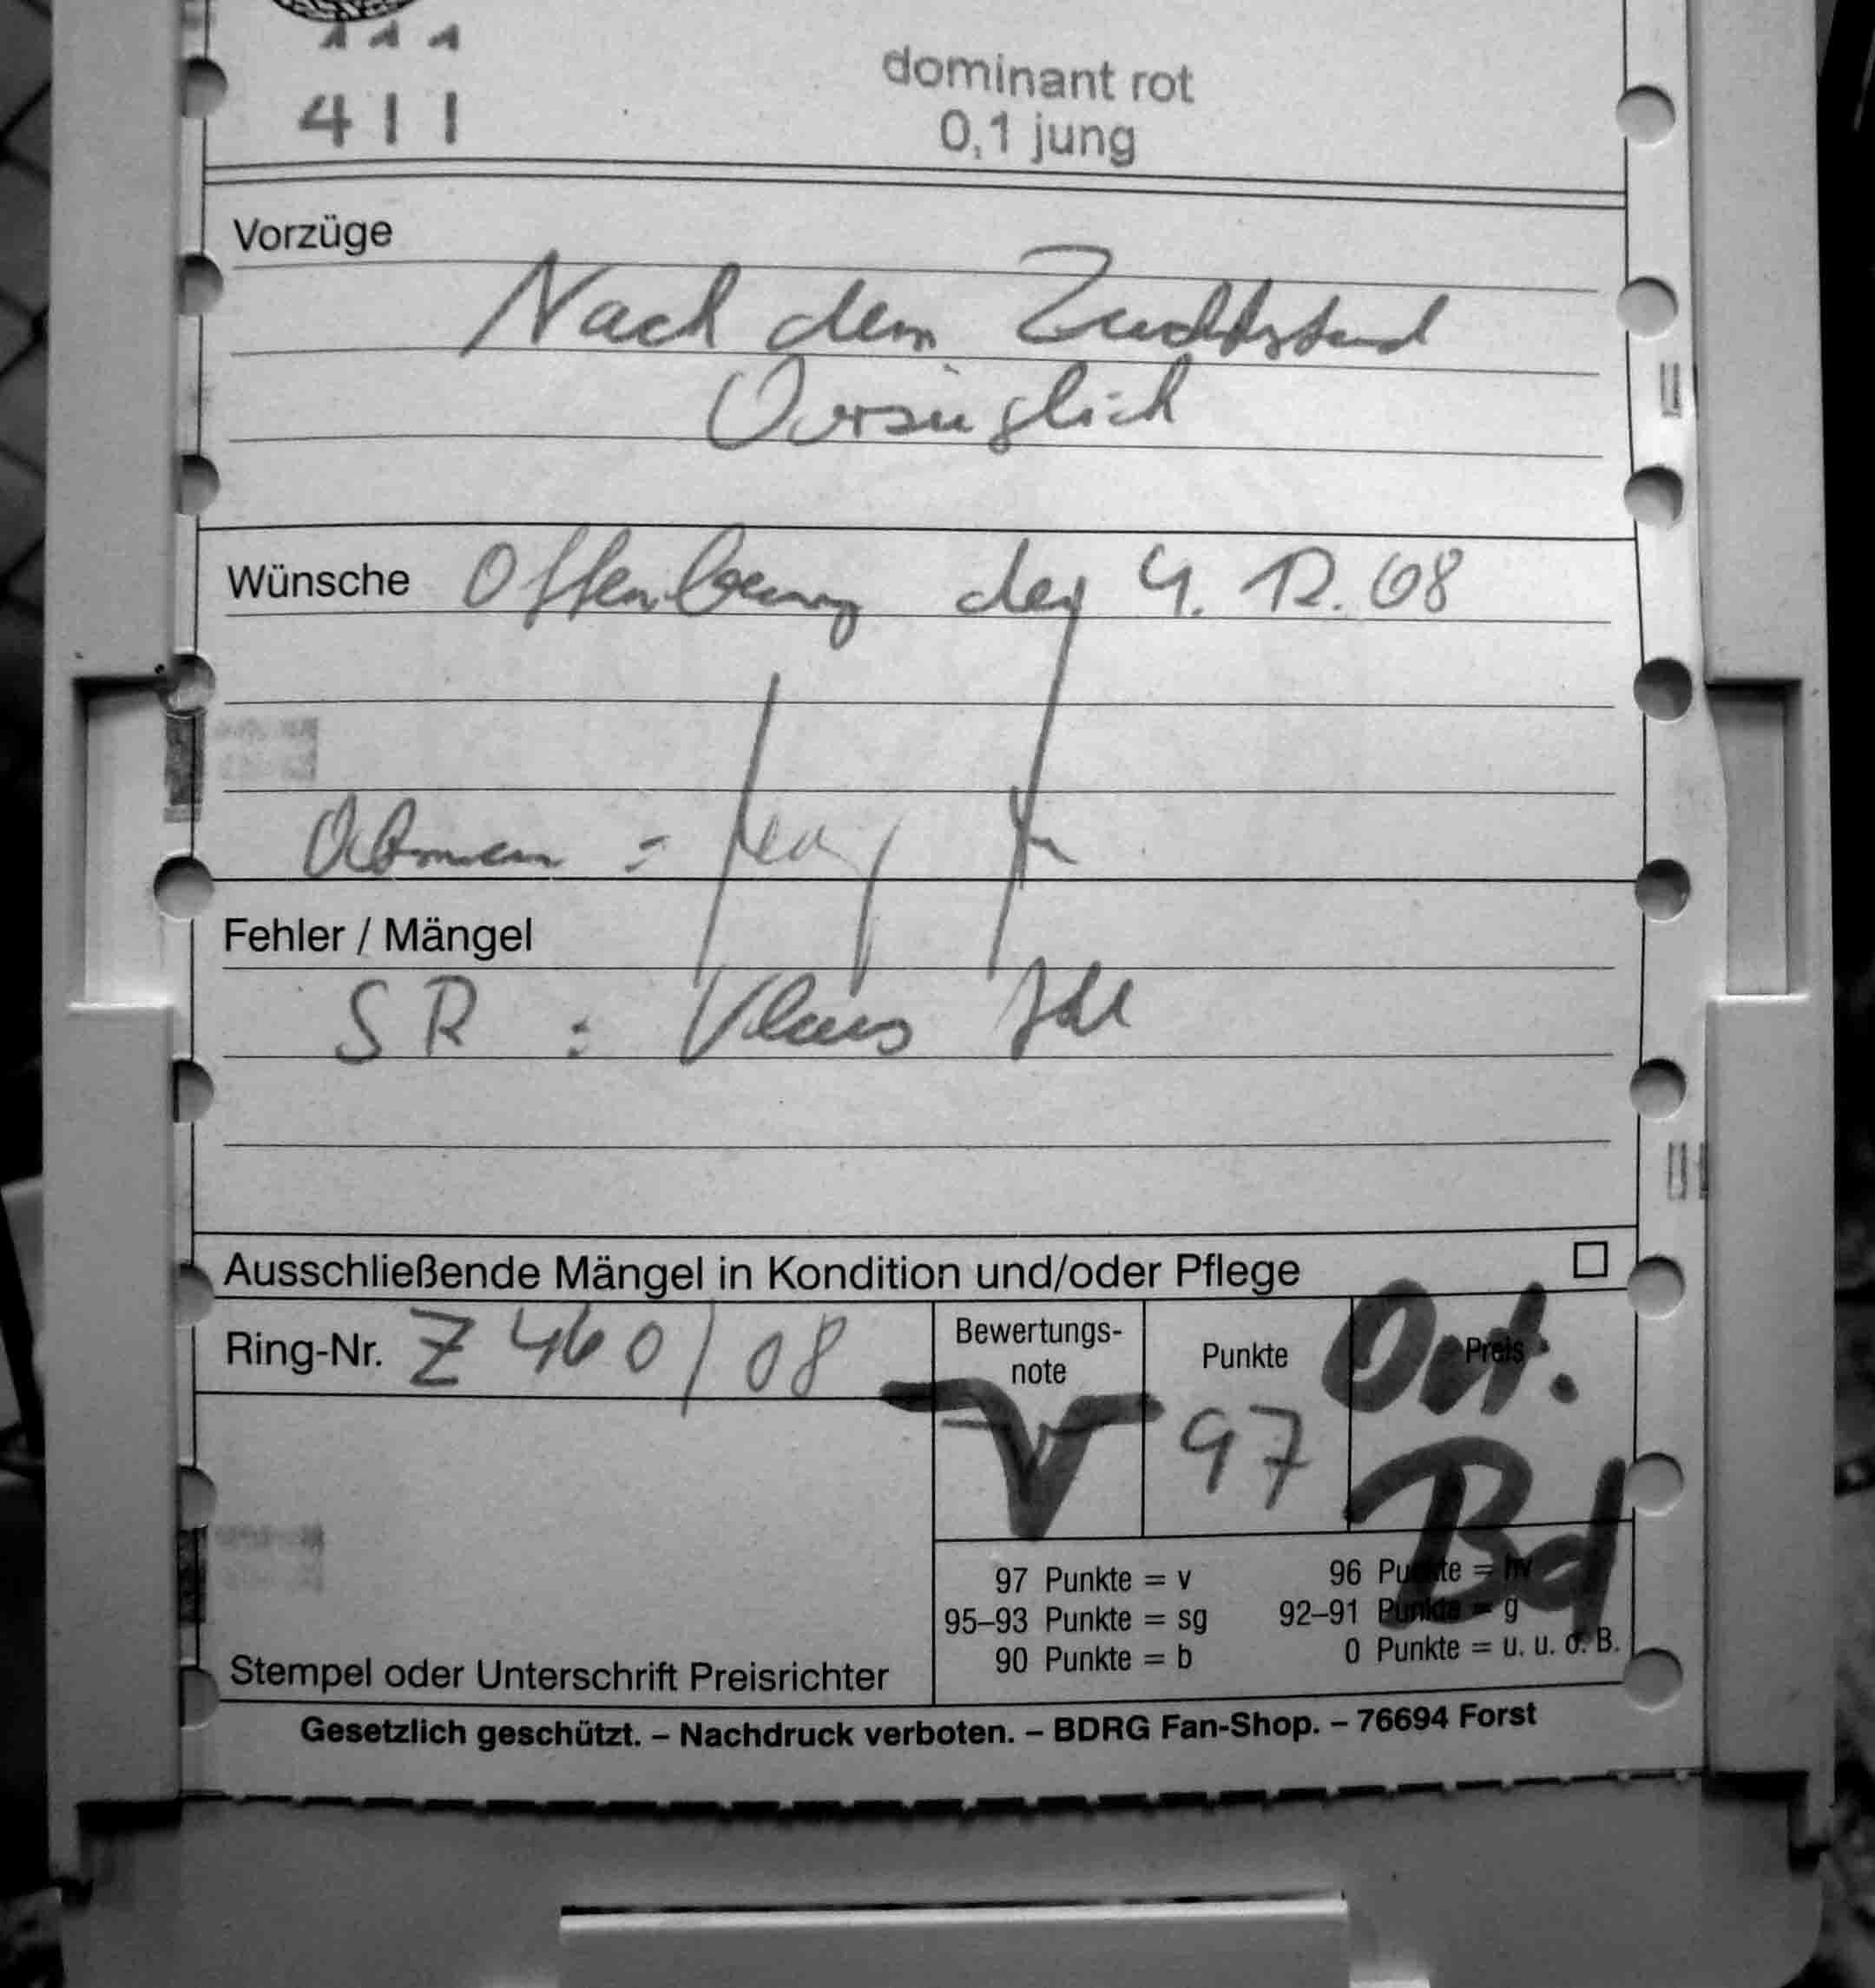 111
411
dominant rot
0,1 jung
Vorzüge
Nach dem Zuchtstand
Vorzüglich
Wünsche Offenburg den 4.12.08
Obmann :
Fehler / Mängel
SR : Klaus
Ausschließende Mängel in Kondition und/oder Pflege
Ring-Nr. Z 460/08
Bewertungs-
note
Punkte
Preis
V 97 Ort.
Bd
97 Punkte = v 96 Punkte = hv
95–93 Punkte = sg 92–91 Punkte = g
90 Punkte = b 0 Punkte = u. u. o. B.
Stempel oder Unterschrift Preisrichter
Gesetzlich geschützt. – Nachdruck verboten. – BDRG Fan-Shop. – 76694 Forst